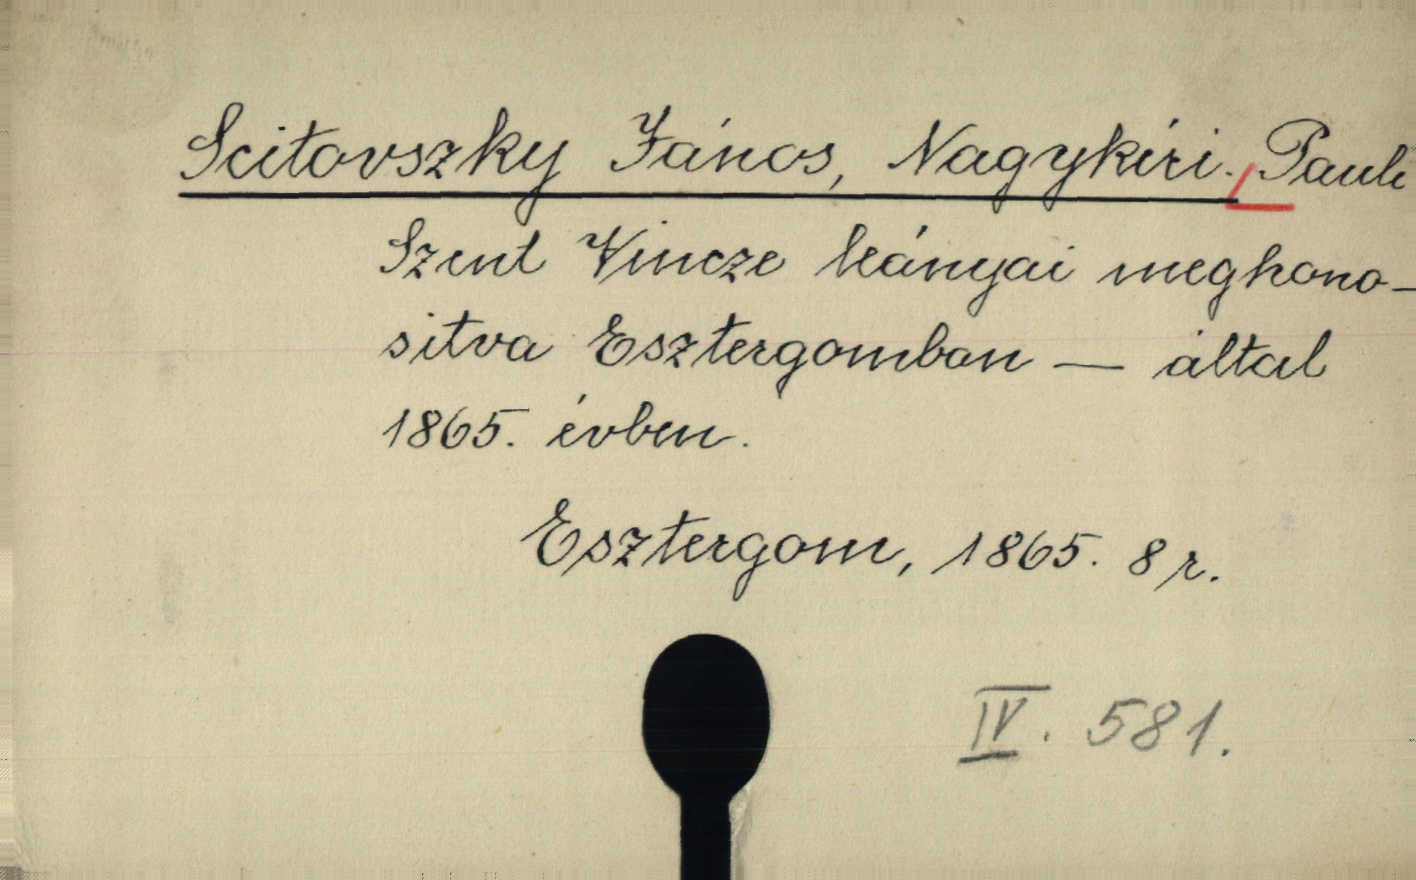 Scitovszky János, Nagykéri. Pauli
Szent Vincze leányai meghono-
sitva Esztergomban — által
1865. évben.
Esztergom, 1865. 8 r.
IV. 581.